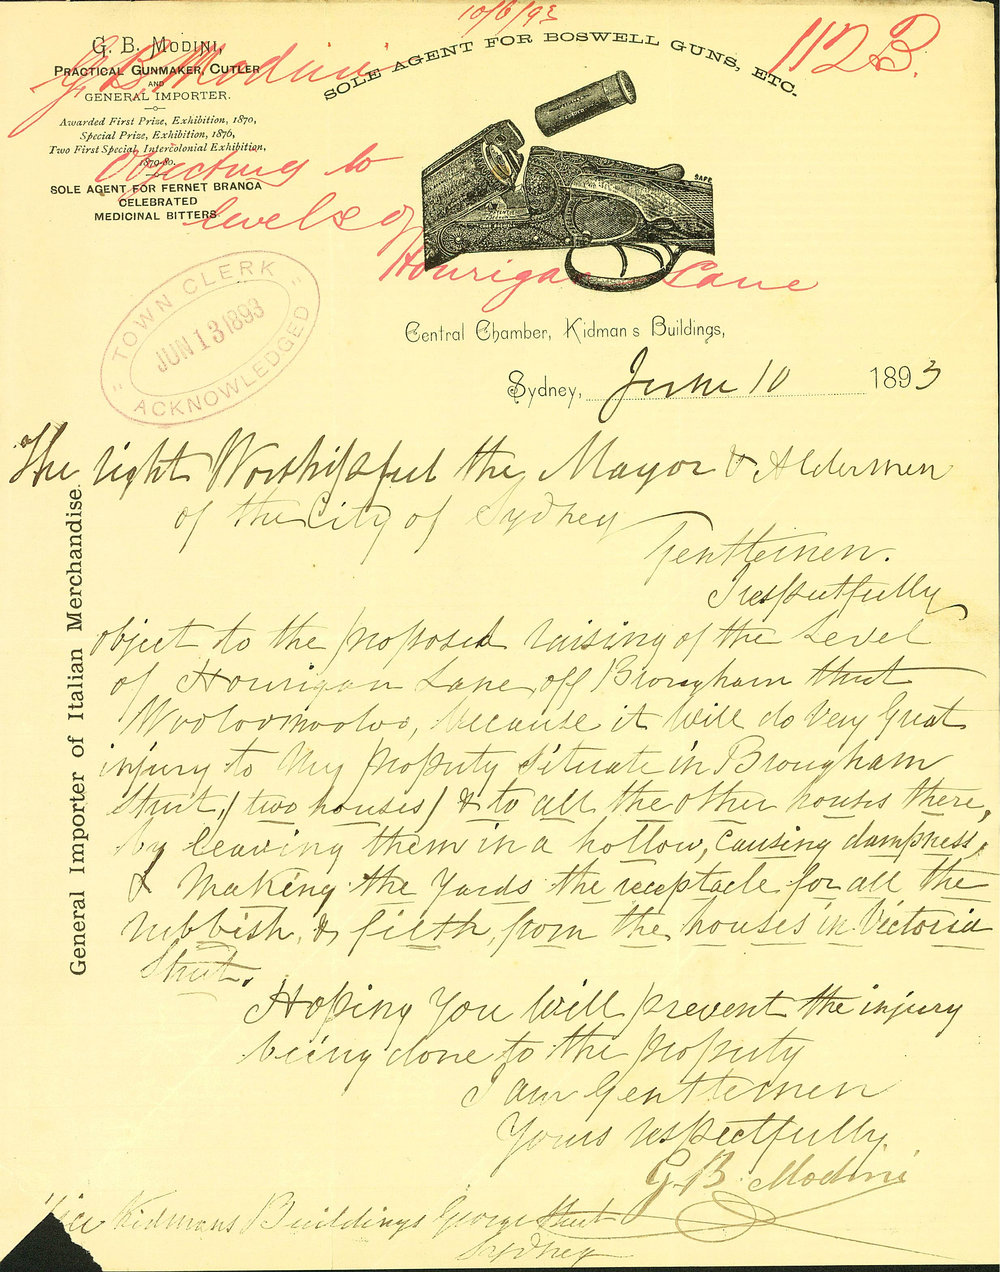 10/6/93
112B.
G. B. Modini
Objecting to
levels of
Hourigan Lane
G. B. MODINI,
PRACTICAL GUNMAKER, CUTLER
AND
GENERAL IMPORTER.
Awarded First Prize, Exhibition, 1870,
Special Prize, Exhibition, 1876,
Two First Special, Intercolonial Exhibition,
1879-80.
SOLE AGENT FOR FERNET BRANCA
CELEBRATED
MEDICINAL BITTERS.
SOLE AGENT FOR BOSWELL GUNS, ETC.
SAFE
TOWN CLERK
JUN 13 1893
ACKNOWLEDGED
Central Chamber, Kidmans Buildings,
Sydney, June 10 1893
General Importer of Italian Merchandise.
The right Worshipful the Mayor & Aldermen
of the City of Sydney
Gentlemen.
I respectfully
object to the proposed raising of the Level
of Hourigan Lane, off Brougham Street
Wooloomooloo, because it will do very great
injury to my property situate in Brougham
Street, (two houses) & to all the other houses there,
by leaving them in a hollow, causing dampness,
& making the yards the receptacle for all the
rubbish, & filth, from the houses in Victoria
Street.
Hoping you will prevent the injury
being done to the property
I am Gentlemen
Yours respectfully
G. B. Modini
Kidmans Buildings George Street
Sydney